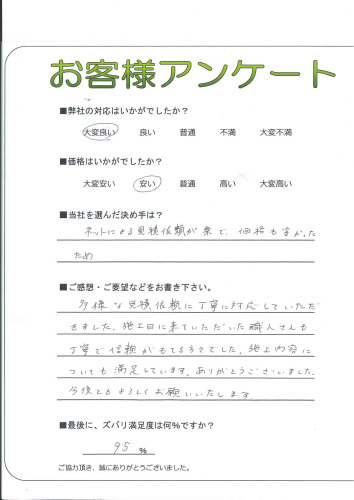 お客様アンケート
■弊社の対応はいかがでしたか?
大変良い 良い 普通 不満 大変不満
■価格はいかがでしたか?
大変安い 安い 普通 高い 大変高い
■当社を選んだ決め手は?
ネットによる見積依頼が楽で、価格も安かった
ため
■ご感想・ご要望などをお書き下さい。
多様な見積依頼に丁寧に対応していただ
きました。施工日に来ていただいた職人さんも
丁寧で信頼がもてる方々でした。施工内容に
ついても満足しています。ありがとうございました。
今後ともよろしくお願いいたします
■最後に、ズバリ満足度は何%ですか?
95 %
ご協力頂き、誠にありがとうございました。